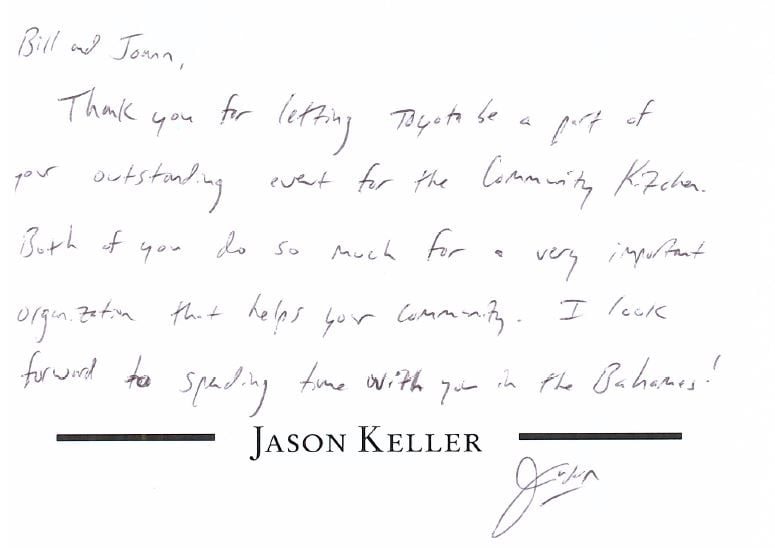 Bill and Joann,
Thank you for letting Toyota be a part of
your outstanding event for the Community Kitchen.
Both of you do so much for a very important
organization that helps your community. I look
forward to spending time with you in the Bahamas!
JASON KELLER
Jason